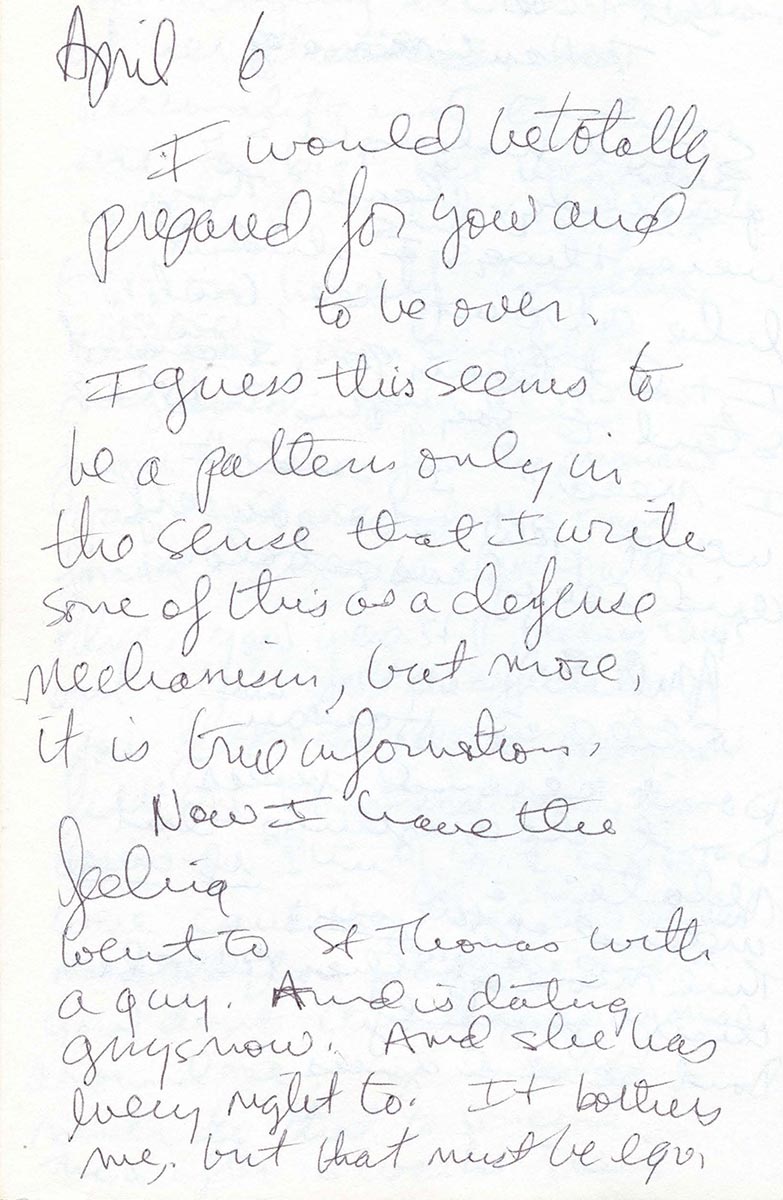 April 6
I would be totally
prepared for you and
to be over.
I guess this seems to
be a pattern only in
the sense that I write
some of this as a defense
mechanism, but more,
it is true information.
Now I have the
feeling
went to St Thomas with
a guy. And is dating
guys now. And she has
every right to. It bothers
me, but that must be ego,